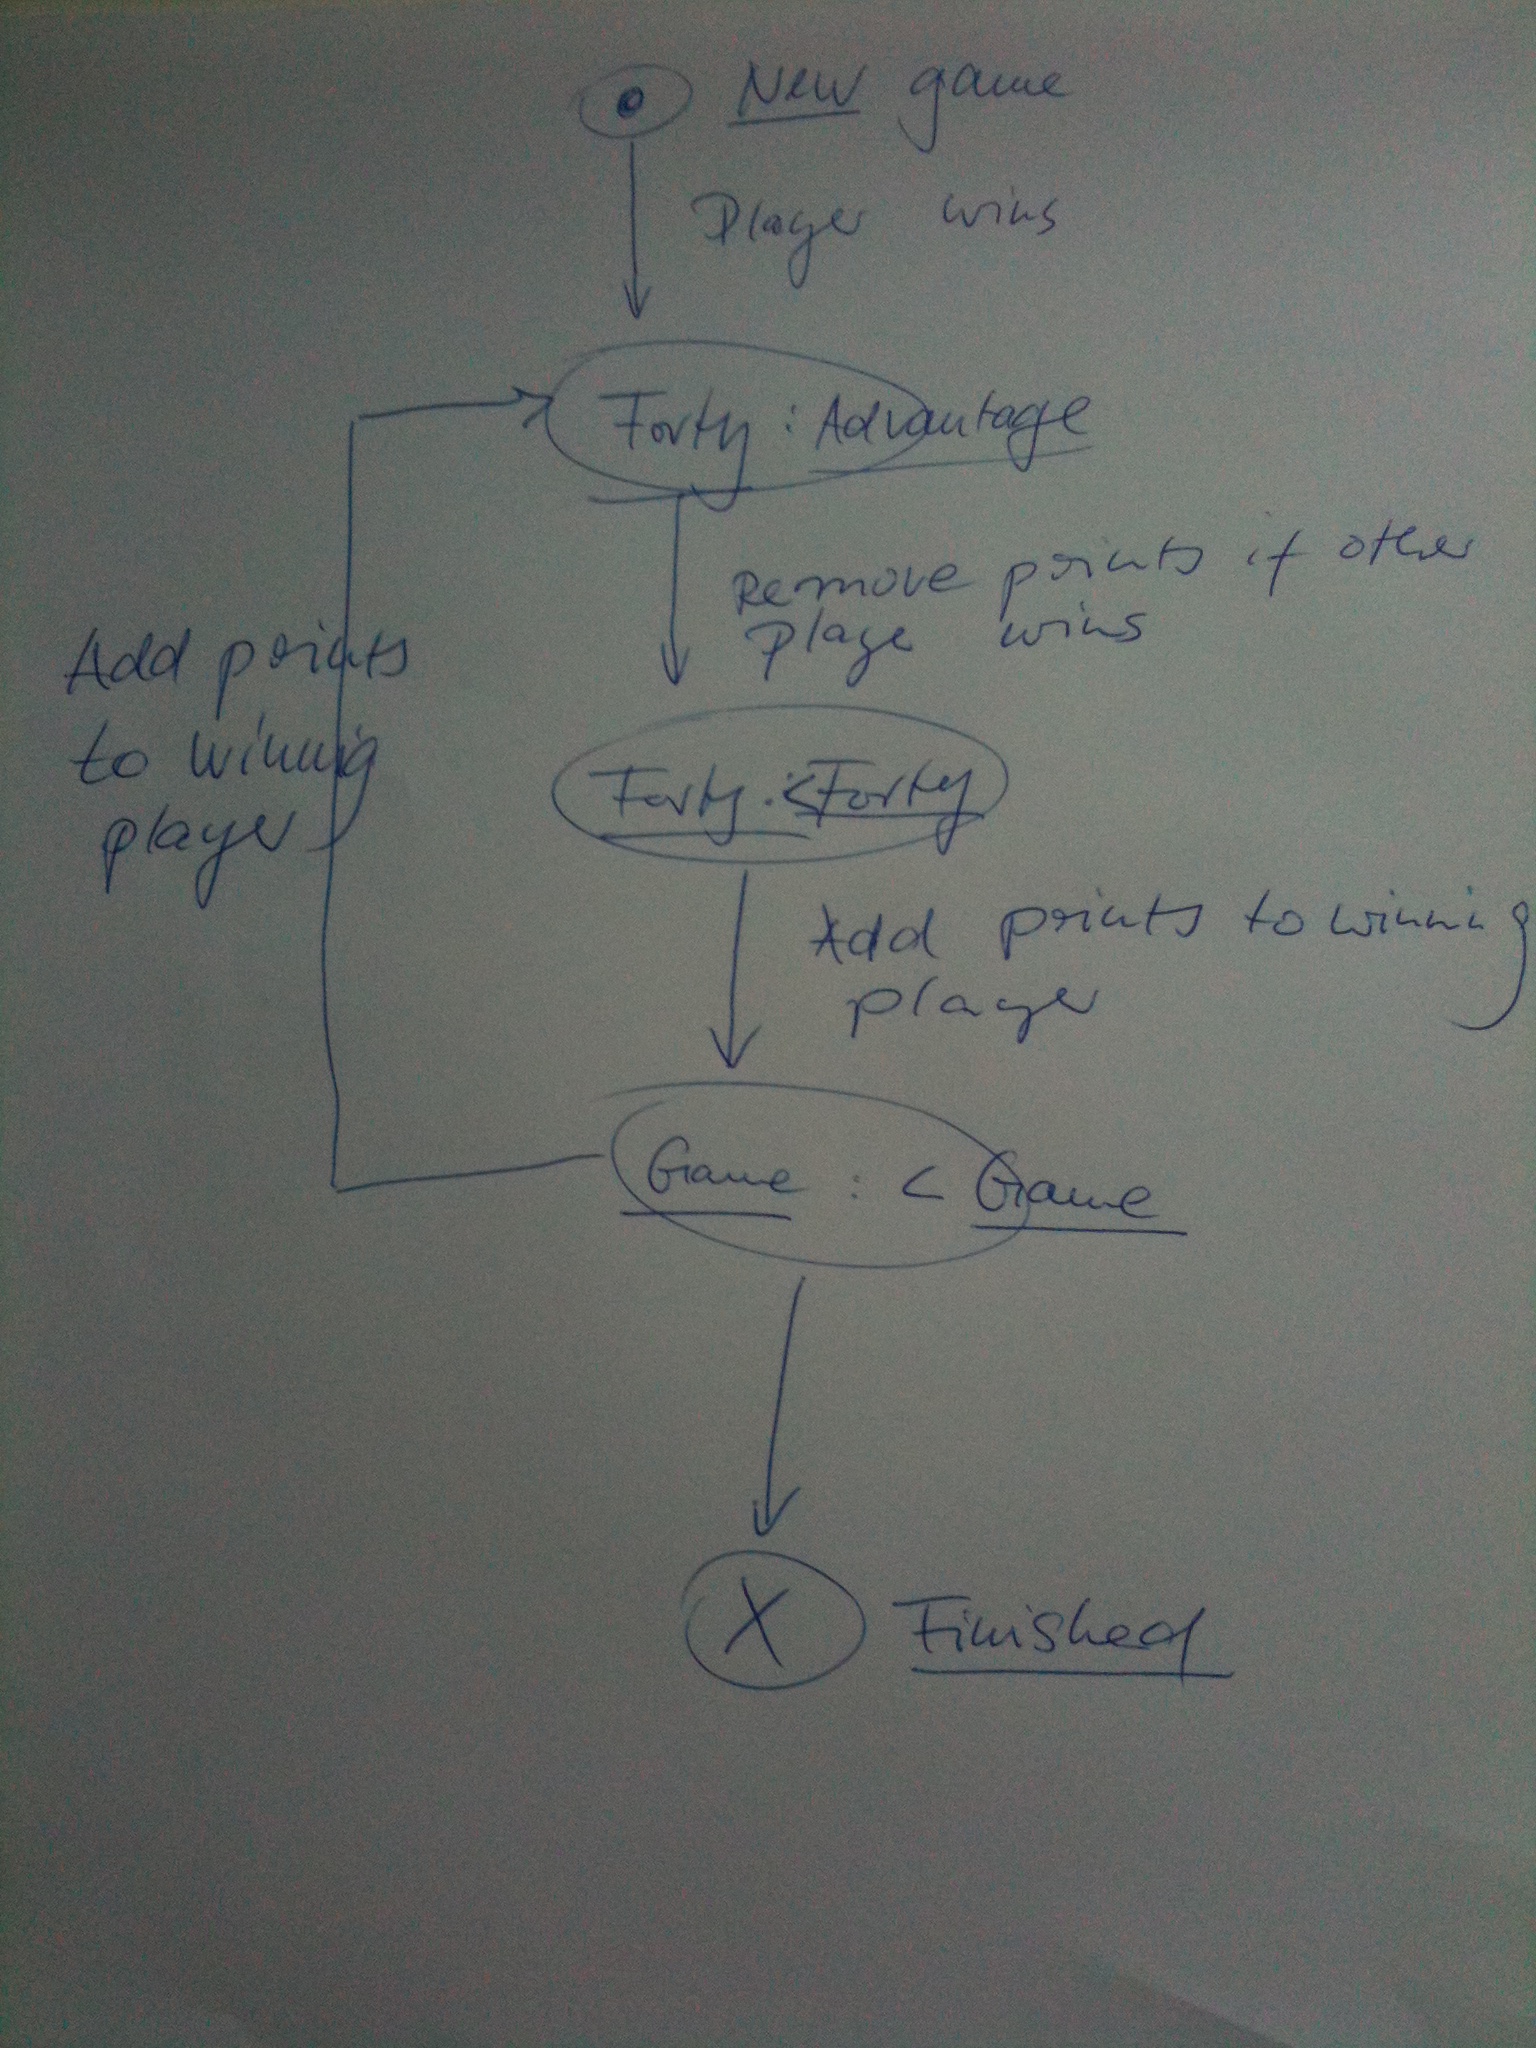 New game
Player wins
Forty : Advantage
Remove points if other
playe wins
Add points
to winnig
player
Forty : <Forty
Add points to winning
player
Game : < Game
X Finished